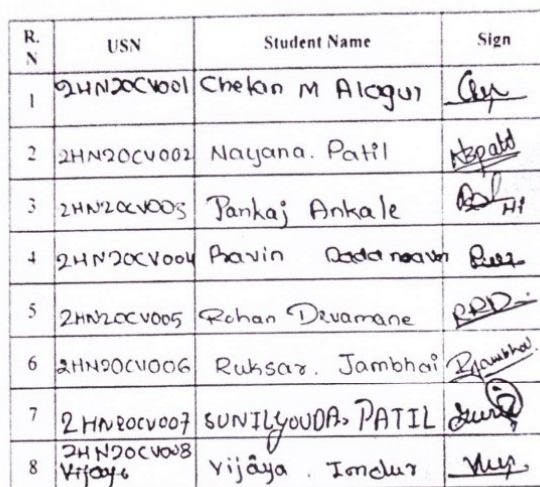 R. N USN Student Name Sign
1 2HN20CV001 Chetan M Alagur
2 2HN20CV002 Nayana. Patil Nspatil
3 2HN20CV003 Pankaj Ankale
4 2HN20CV004 Pravin
5 2HN20CV005 Rohan Devamane RRD
6 2HN20CV006 Ruksar. Jambhai Rjambhai.
7 2HN20CV007 SUNILYOUDA. PATIL
2HN20CV008
8 Vijaya Vijaya . Indur